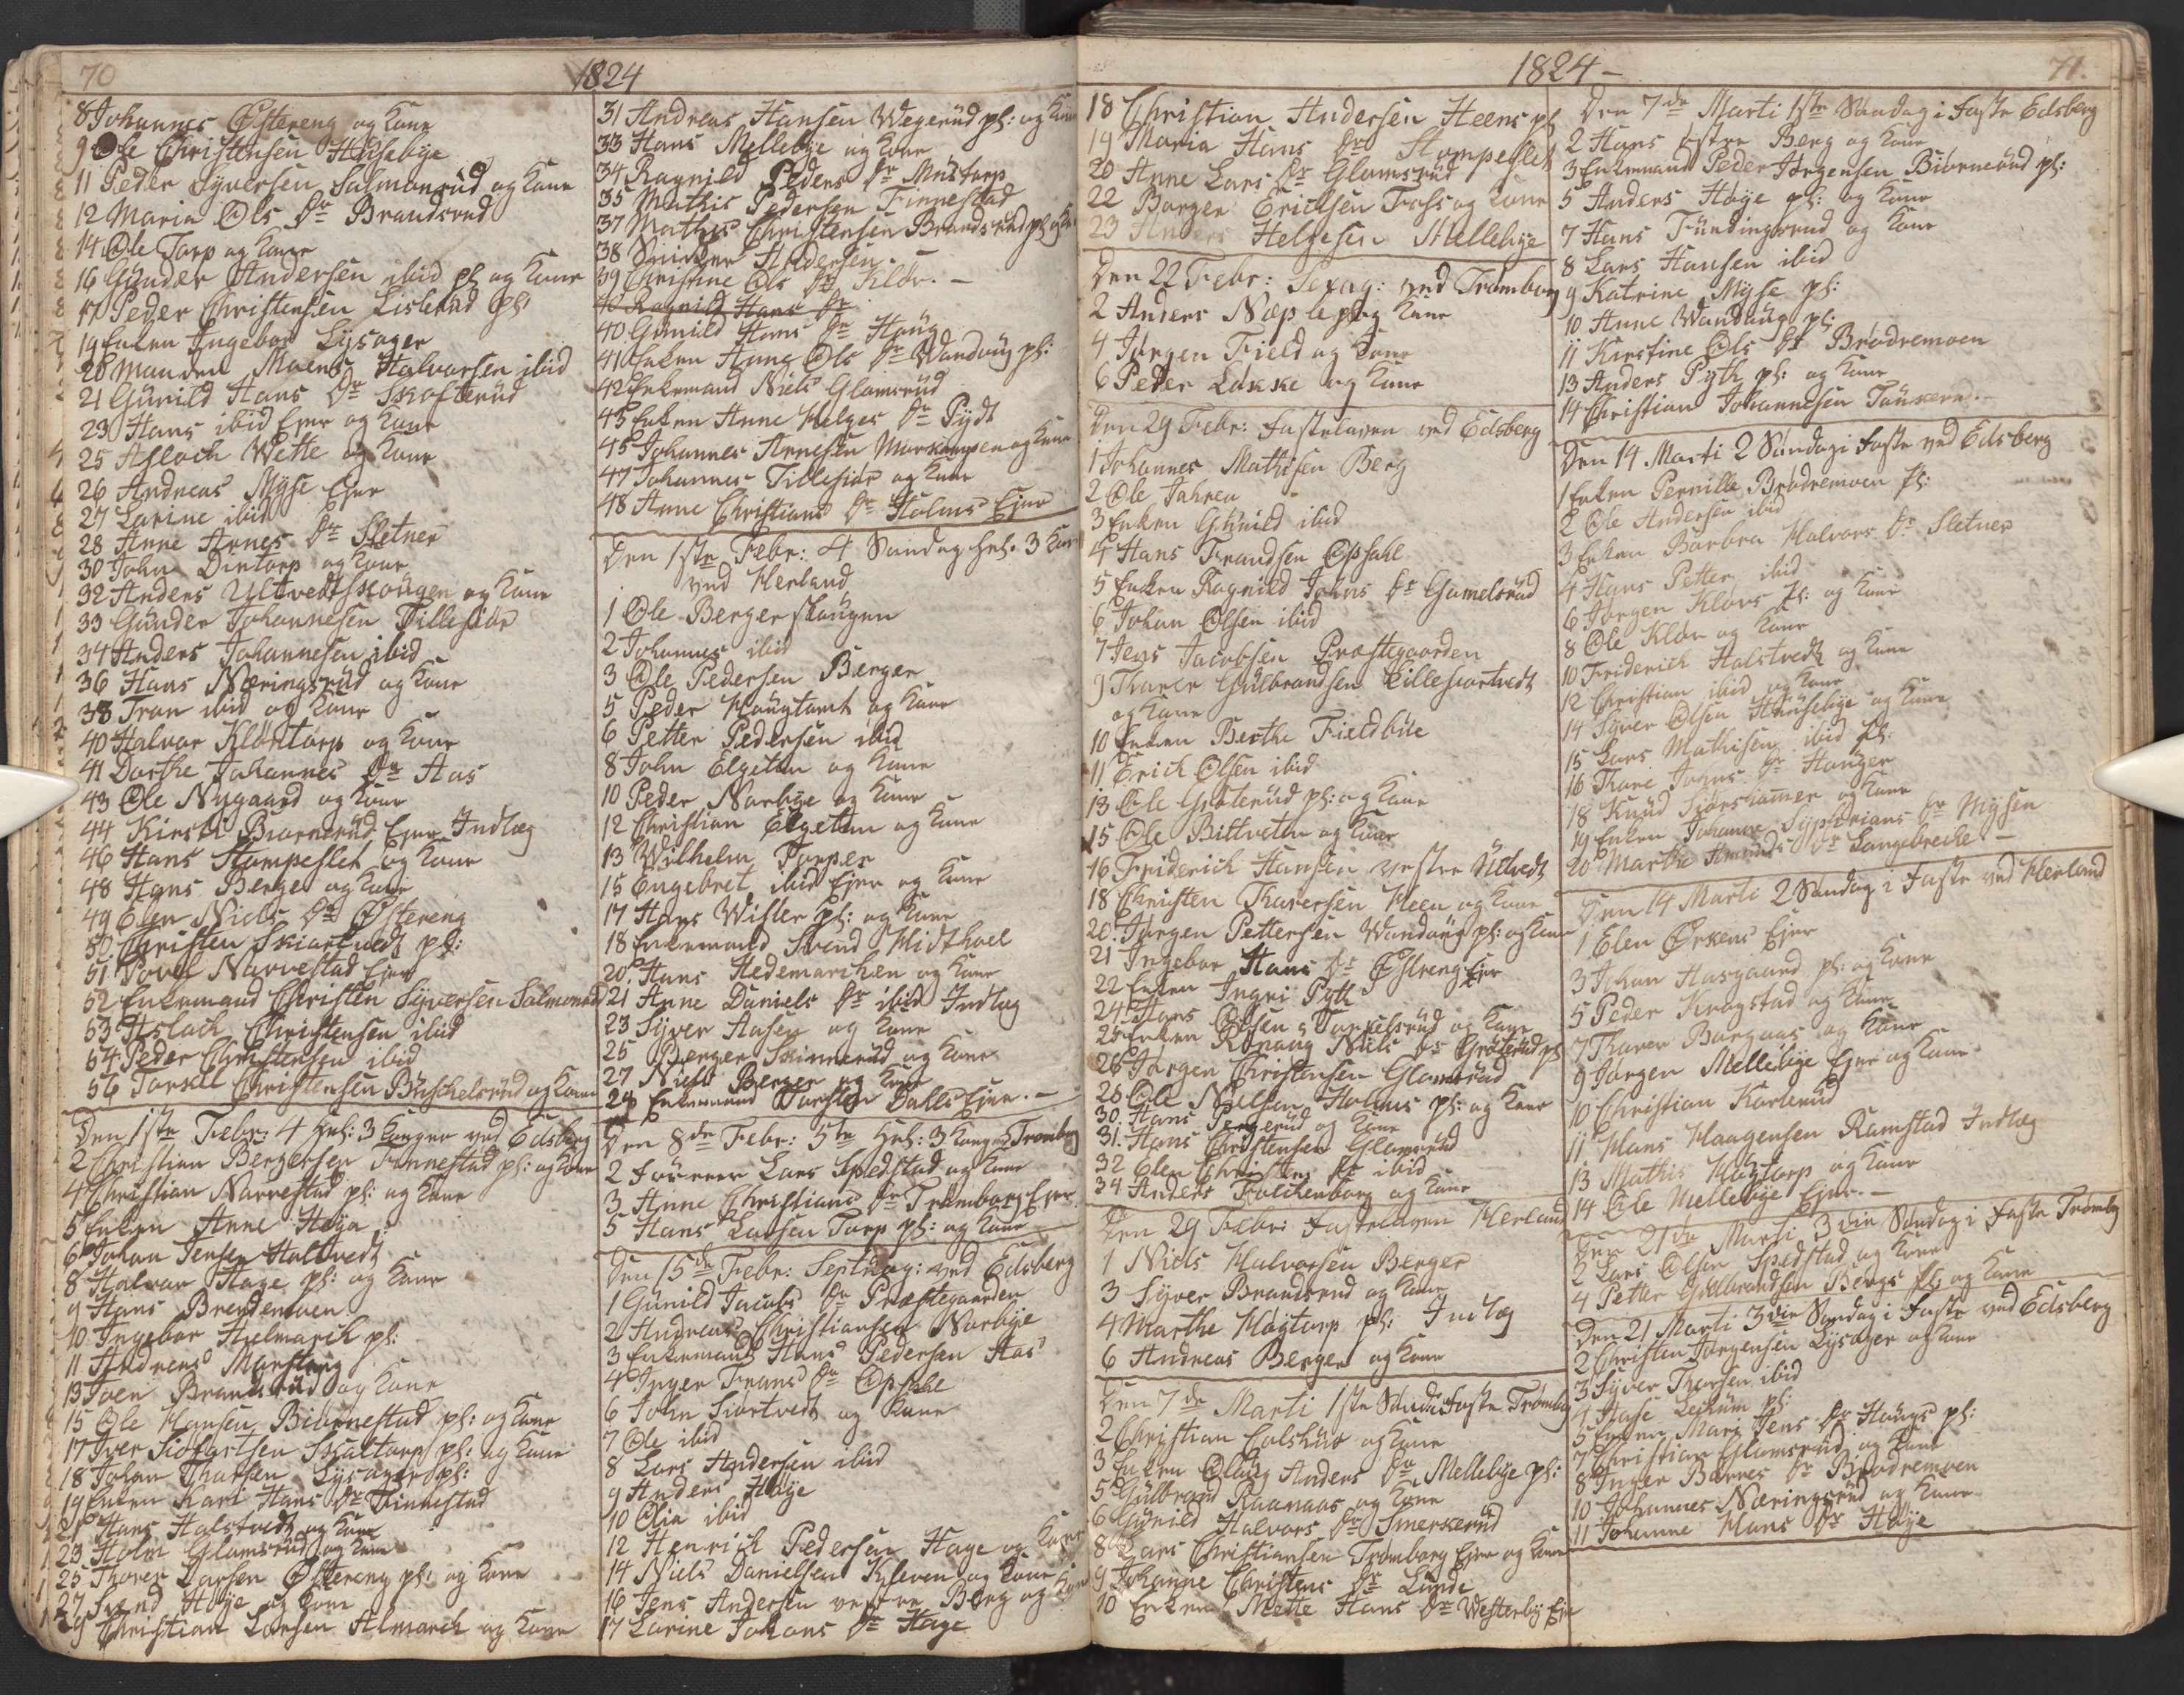 70
1824
8 Johannes Østereng og Kone
9 Ole Christensen Huusebÿe
11 Peder Syversen Salmonrud og Kone
12 Maria Ols Dr Brandsrud
14 Ole Torp og Kone
16 Gunder Andersen ibid pl: og Kone
17 Peder Christensen Lislerud pl:
19 Enken Ingebor Lysager
20 Manden Moens Halvorsen ibid
21 Gunild Hans Dr Skofterud
23 Hans ibid Ejer og Kone
25 Asloch Wette og Kone
26 Andreas Myse Ejer
27 Larine ibid
28 Anne Arnes Dr Sletner
30 John Dintorp og Kone
32 Anders Ultvedtskougen og Kone
33 Gunder Johannesen Tillesiør
34 Anders Johannesen ibid
36 Hans Næringsrud og Kone
38 Tron ibid og Kone
40 Halvor Kløntorp og Kone
41 Dorthe Johannes Dr Aas
43 Ole Nygaard og Kone
44 Kirsti Biørnerud Ejer Indlæg
46 Hans Stompeslet og Kone
48 Hans Berge og Kone
49 Elen Niels Dr Østereng
50 Christen Skiørtvedt pl:
51 Povel Narvestad Ejer
52 Enkemand Christen Syversen Salmonrud
53 Aslach Christensen ibid
54 Peder Christensen ibid
56 Torkel Christensen Buschelsrud og Kone
Den 1ste Febr: 4 Hel: 3 Konger ved Edsberg
2 Christian Bergersen Finnestad pl: og Kone
4 Christian Narvestad pl: og Kone
5 Enken Anne Høya
6 Johan Jensen Haltvedt
8 Halvor Hage pl: og Kone
9 Hans Brendemoen
10 Ingebor Hielmarck pl:
11 Andreas Morstang
13 Joen Brandsrud og Kone
15 Ole Hansen Biørnestad pl: og Kone
17 Iver Siofartsen Skaltorp pl: og Kone
18 Johan Thorsen Lysager pl:
19 Enken Kari Hans Dr Finnestad
21 Hans Halstvedt og Kone
23 Holm Glomsrud og Kone
25 Thorer Larsen Østereng pl: og Kone
27 Svend Høje og Kone
29 Christian Larsen Almarck og Kone
31 Andreas Hansen Wegerud pl: og Kone
33 Hans Mellebye og Kone
34 Ragnild Peders Dr Mustorp
35 Mathis Pedersen Finnestad
37 Mathis Christensen Brandsrud pl: og
38 Andersen
39 Christine Ols Dr Klør. -
40 Ragnild Hans Dr
40. Gunild Hans Dr Houg
41 Enken Anne Ols Dr Wandoug pl:
42 Enkemand Niels Glomsrud
43 Enken Anne Helges Dr Pydt
45 Johannes Arnesen Morskampen og Kone
47 Johannes Tillesiør og Kone
48 Anne Christians Dr Holms Ejer
Den 1ste Febr: 4 Søndag Hel: 3 Kon
ved Herland
1 Ole Bergerskougen
2 Johannes ibid
3 Ole Pedersen Berger
5 Peder Hougtomt og Kone
6 Petter Pedersen ibid
8 John Elgetun og Kone
10 Peder Norbye og Kone
12 Christian Elgetun og Kone
13 Wilhelm Torper
15 Engebret ibid Ejer og Kone
17 Hans Wister pl: og Kone
18 Enkemand Svend Midthoel
20. Hans Hedemarchen og Kone
21 Anne Daniels Dr ibid Indlæg
23 Syver Aasen og Kone
25 Berger Skinnerud og Kone
27 Niels Berger og Kone
28 Enkemand Torsten Dahls Ejer. -
Den 8de Febr: 5te Hel: 3 Konger Trømborg
2 Lars Spedstad og Kone
3 Anne Christians Dr Trømborg Ejer
5 Hans Larsen Torp pl: og Kone
Den 15de Febr: Septuag: ved Edsberg
1 Gunild Jacobs Dr Præstegaarden
2 Andreas Christiansen Norbye
3 Enkemand Hans Pedersen Aas
4 Inger Frans Dr Opsahl
6 John Siortvedt og Kone
7 Ole ibid
8 Lars Andersen ibid
9 Anders Høye
10 Olia ibid
12 Henrich Pedersen Hage og Kone
14 Niels Danielsen Kleven og Kone
16 Jens Andersen vestre Berg og Kone
17 Larine Johans Dr Hage
1824 -
71.
18 Christian Andersen Heens pl
19 Maria Hans Dr Stompeslet
20 Anne Lars Dr Glomsrud
22 Borger Ericksen Foss og Kone
23 Anders Helgesen Mellebye
Den 22 Febr: Sexag: ved Trømborg
2 Anders Næple pl og Kone
4 Jørgen Field og Kone
6 Peder Løkke og Kone
Den 29 Febr: Fastelaven ved Edsberg
1 Johannes Mathisen Berg
2 Ole Jahren
3 Enken Gunild ibid
4 Hans Frandsen Opsahl
5 Enken Ragnild Johns Dr Gamelsrud
6 Johan Olsen ibid
7 Jens Jacobsen Præstegaarden
9 Thorer Gulbrandsen Lillesiortvedt
og Kone
10 Enken Berthe Fieldbue
11 Erich Olsen ibid
13 Ole Grøterud pl: og Kone
15 Ole Bittvetun og Kone
16 Friderich Hansen vestre Ultvedt
18 Christen Thorersen Heen og Kone
20. Jørgen Pettersen Wandoug pl: og Kone
21 Ingebor Hans Dr Østreng Ejer
22 Enken Ingri Pytt
24 Hans Olsen Torkelsrud og Kone
25 Enken Ronnaug Niels Dr Grøterud pl
26 Jørgen Christensen Glomsrud
28 Ole Nielsen Holms pl: og Kone
30. Hans Pergerud og Kone
31. Hans Christensen Glomsrud
32 Elen Christens Dr ibid
34 Anders Folchenborg og Kone
Den 29 Febr: Fastelaven Herland
1 Niels Halvorsen Berger
3 Syver Brandsrud og Kone
4 Marthe Høgtorp pl: Indlæg
6 Andreas Berger og Kone
Den 7de Marti 1ste Sønda Faste Trømbo
2 Christian Colshus og Kone
3 Enken Oloug Anders Dr Mellebye pl:
5 Gulbrand Raanaas og Kone
6 Gunild Halvors Dr Smerkerud
8 Lars Christiansen Trømborg Ejer og Kone
9 Johanne Christens Dr Lunde
10 Enken Mette Hans Dr Westerby Eje
Den 7de Marti 1ste Søndag i Faste Edsberg
2 Hans østre Berg og Kone
3 Enkemand Peder Jørgensen Biørnerud pl:
5 Anders Høye pl: og Kone
7 Hans Fundingsrud og Kone
8 Lars Hansen ibid
9 Katrine Myse pl:
10 Anne Wandoug pl:
11 Kirstine Ols Dr Brødremoen
13 Anders Pytt pl: og Kone
14 Christian Johannesen Tonnerud. -
Den 14 Marti 2 Søndag i Faste ved Edsberg
1 Enken Pernille Brødremoen pl:
2 Ole Andersen ibid
3 Enken Barbra Halvors Dr Sletner
4 Hans Petter ibid
6 Jørgen Kløvs pl: og Kone
8 Ole Klør og Kone
10 Friderich Halstvedt og Kone
12 Christian ibid og Kone
14 Syver Olsen Huusebye og Kone
15 Lars Mathisen ibid pl:
16 Thore Johns Dr Houger
18 Knud Siørshammer og Kone
19 Enken Johanne Syphrians Dr Mysen
20 Marthe Amunds Dr Langebrecke -
Den 14 Marti 2 Søndag i Faste ved Herland
1 Elen Ørkens Ejer
3 Johan Aasgaard pl: og Kone
5 Peder Kragstad og Kone
7 Thorer Borgaas og Kone
9 Jørgen Mellebye Ejer og Kone
10 Christian Karlerud
11 Hans Haagensen Ramstad Indlæg
13 Mathis Høgtorp og Kone
14 Ole Mellebye Ejer. -
Den 21de Marti 3die Søndag i Faste Trømbg
2 Lars Olsen Spedstad og Kone
4 Petter Gulbrandsen Bergs pl: og Kone
Den 21 Marti 3die Søndag i Faste ved Edsberg
2 Christen Jørgensen Lysager og Kone
3 Syver Thorsen ibid
4 Aase Lekum pl:
5 Enken Mari Jens Dr Hougs pl:
7 Christian Glomsrud og Kone
8 Inger Børres Dr Brødremoen
10 Johannes Næringsrud og Kone
11 Johanne Hans Dr Høye